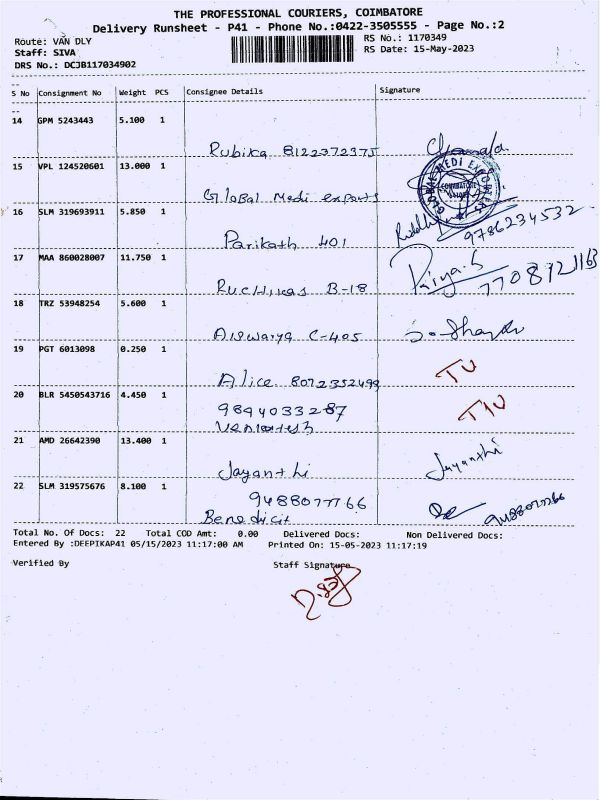 THE PROFESSIONAL COURIERS, COIMBATORE
Delivery Runsheet - P41 - Phone No.:0422-3505555 - Page No.:2
Route: VAN DLY
RS No.: 1170349
Staff: SIVA
RS Date: 15-May-2023
DRS No.: DCJB117034902
S No Consignment No Weight PCS Consignee Details Signature
14 GPM 5243443 5.100 1
Rubika 8122372375
15 VPL 124520601 13.000 1
Global Medi exports
GLOBAL MEDI EXPORTERS
COIMBATORE
16 SLM 319693911 5.850 1
Parikath 401 9786234532
17 MAA 860028007 11.750 1
Priya.S
Ruchikas B-18
18 TRZ 53948254 5.600 1
Aiswarya C-405
19 PGT 6013098 0.250 1
Alice 8072352499
20 BLR 5450543716 4.450 1
9894033287
21 AMD 26642390 13.400 1
Jayanthi Jayanthi
22 SLM 319575676 8.100 1
9488077766 9488077766
Benedicit
Total No. Of Docs: 22 Total COD Amt: 0.00 Delivered Docs: Non Delivered Docs:
Entered By :DEEPIKAP41 05/15/2023 11:17:00 AM Printed On: 15-05-2023 11:17:19
Verified By Staff Signature